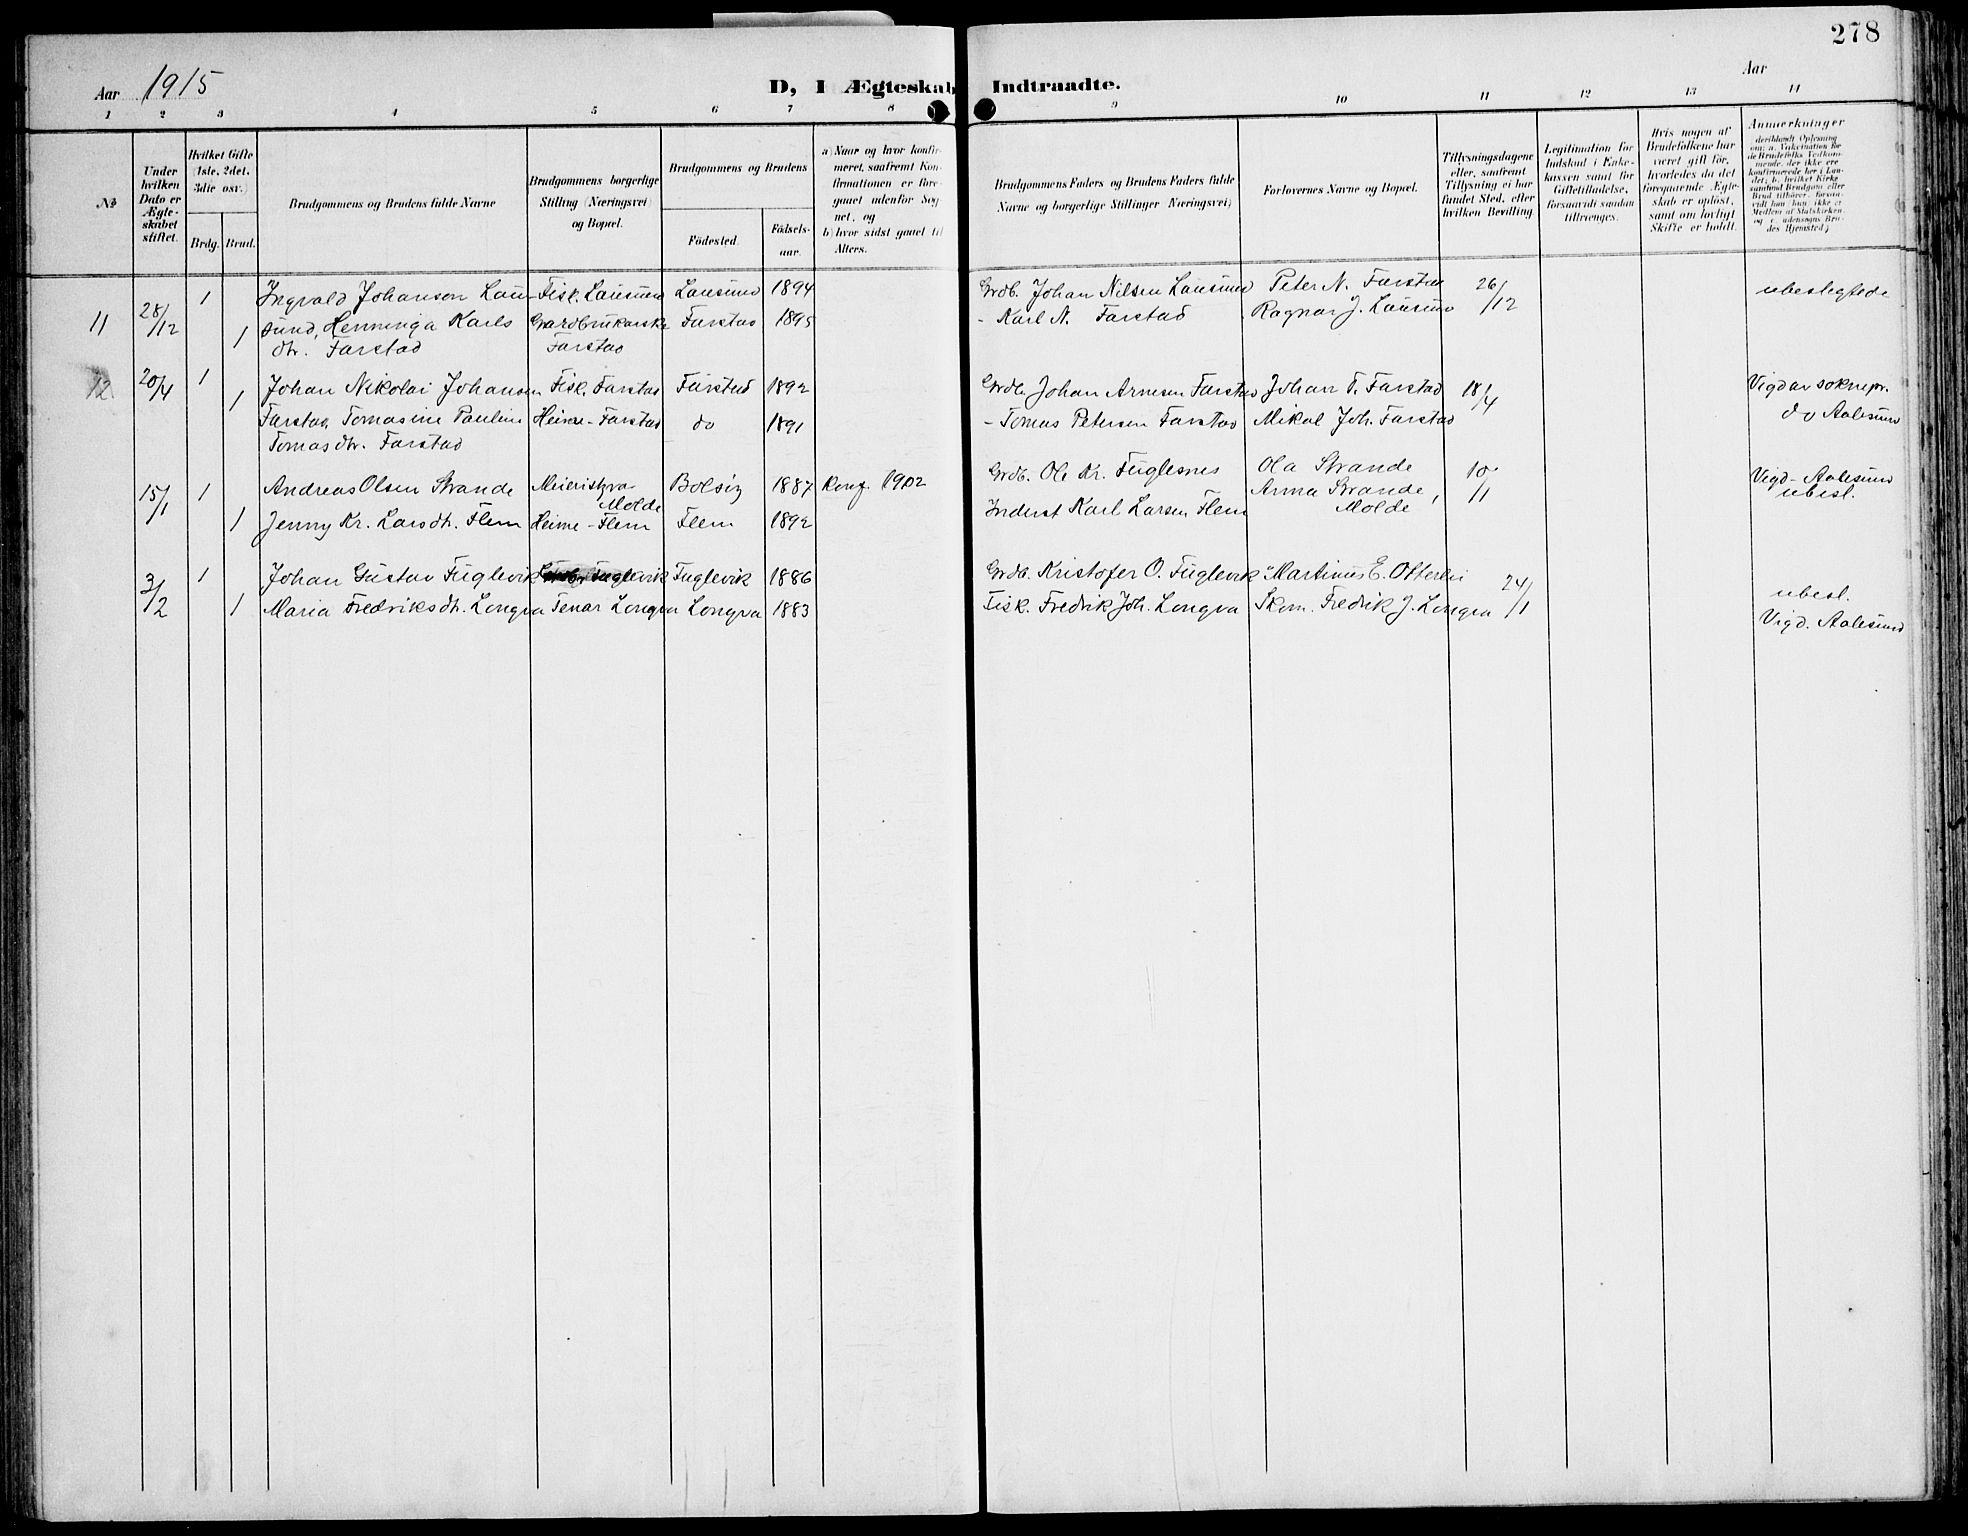 278
Aar 1915
D, I Ægteskab Indtraadte.
Aar
1 2 3 4 5 6 7 8 9 10 11 12 13 14
№
Under hvilken Dato er Ægteskabet stiftet.
Hvilket Gifte (1ste, 2det, 3die osv.)
Brdg. Brud.
Brudgommens og Brudens fulde Navne
Brudgommens borgerlige Stilling (Næringsvei) og Bopæl.
Brudgommens og Brudens
Födested. Födsels-aar.
a) Naar og hvor konfirmeret, saafremt Konfirmationen er foregaaet udenfor Sognet, og
b) hvor sidst gaaet til Alters.
Brudgommens Faders og Brudens Faders fulde Navne og borgerlige Stillinger (Næringsvei)
Forlovernes Navne og Bopæl.
Tillysningsdagene eller, saafremt Tillysning ei har fundet Sted, efter hvilken Bevilling.
Legitimation for Indskud i Enkekassen samt for Giftetilladelse, forsaavidt saadan tiltrænges.
Hvis nogen af Brudefolkene har været gift før, hvorledes da det foregaaende Ægteskab er opløst, samt om lovligt Skifte er holdt.
Anmerkninger
11 28/12 1 Ingvald Johanson Lau- Fisk. Lausund Lausund 1894 Grdb. Johan Nilsen Lausund Peter N. Farstad 26/12 ubeslegtede
1 sund, Henninga Karls Gardbrukarske Farstad 1895 - Karl N. Farstad Ragnar J. Lausund
dtr. Farstad Farstad
12 20/4 1 Johan Nikolai Johansen Fisk. Farstad Farstad 1892 Grdb. Johan Arnesen Farstad Johan T. Farstad 18/4 Vigd av soknepr.
1 Farstad, Tomasine Pauline Heime-Farstad do 1891 - Tomas Petersen Farstad Mikal Joh. Farstad do Aalesund
Tomasdtr. Farstad
15/1 1 Andreas Olsen Strande Meieristyra Bolsöy 1887 Konf. 1902 Grdb. Ole Kr. Fuglesnes Ola Strande 10/1 Vigd- Aalesund
Molde Anna Strande, ubesl.
1 Jenny Kr. Larsdtr. Flem Heime-Flem Flem 1892 Inderst Karl Larsen Flem Molde
3/2 1 Johan Gustav Fuglevik Fuglevik Fuglevik 1886 Grdb. Kristofer O. Fuglevik Martinus E. Otterlei 24/1
1 Maria Fredriksdtr. Longva Tenar Longva Longva 1883 Fisk. Fredrik Joh. Longva Skom. Fredrik J. Longva ubesl.
Vigd. Aalesund